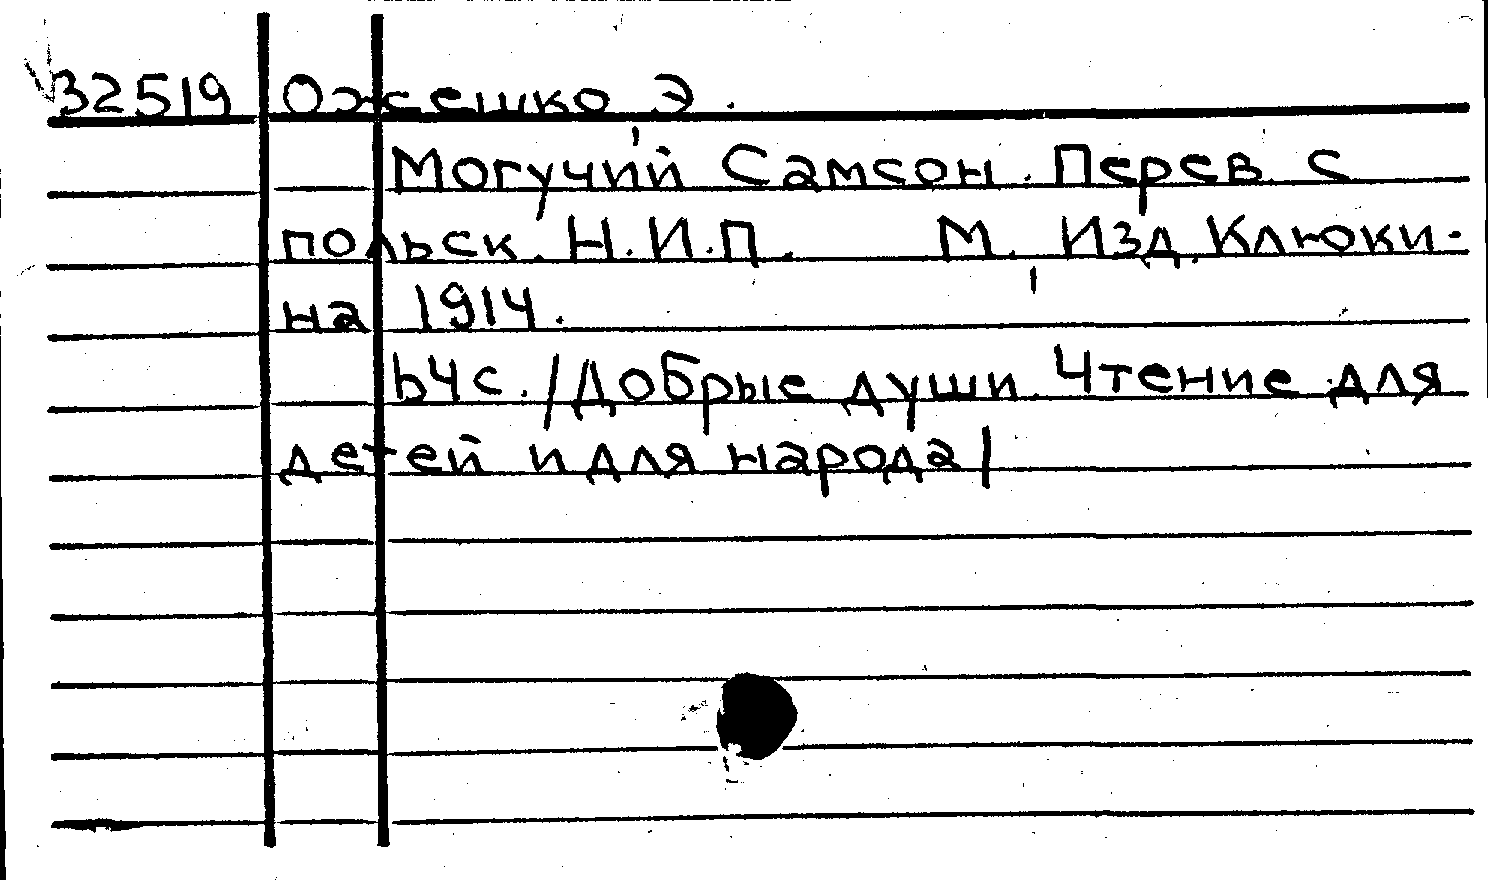 32519 Ожешко Э.
Могучий Самсон. Перев. с
польск. Н.И.П. М. Изд. Клюки-
на 1914.
64с. /Добрые души. Чтение для
детей и для народа/